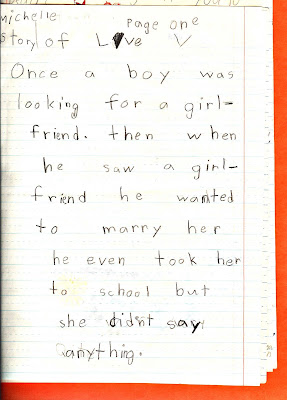 michelle Page one
story of Love V
Once a boy was
looking for a girl-
friend. then when
he saw a girl-
friend he wanted
to marry her
he even took her
to school but
she didn't say
anything.